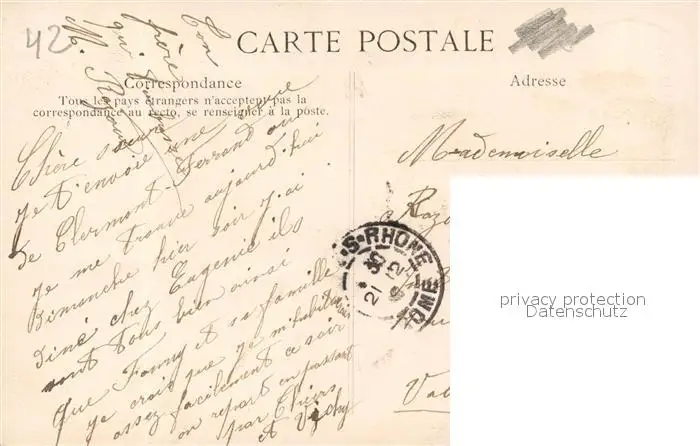 42
CARTE POSTALE
Correspondance
Tous les pays étrangers n'acceptent pas la
correspondance au recto, se renseigner à la poste.
Adresse
Ton
frère
qui
M.
Chère sœur
Je t'envoie une vue
de Clermont-Ferrand ou
je me trouve aujourd'hui
Dimanche hier soir j'ai
diné chez Eugenie ils
sont tous bien ainsi
que Fanny et sa famille
je crois que je m'habituerai
assez facilement ce soir
on repart en passant
par Thiers
A Vichy
Mademoiselle
S-RHONE
21
privacy protection
Datenschutz